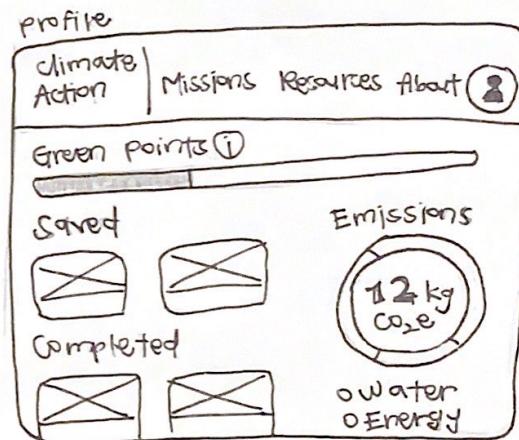 profile
climate
Action
Missions Resources About
Green points i
Saved
Emissions
12 kg
CO₂e
Completed
Water
Energy